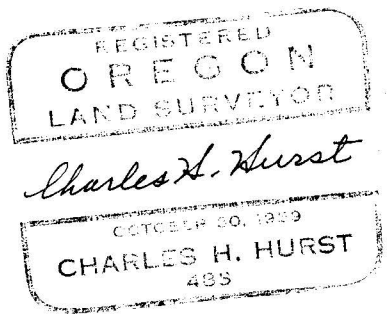 REGISTERED
OREGON
LAND SURVEYOR
Charles H. Hurst
OCTOBER 30, 1959
CHARLES H. HURST
485